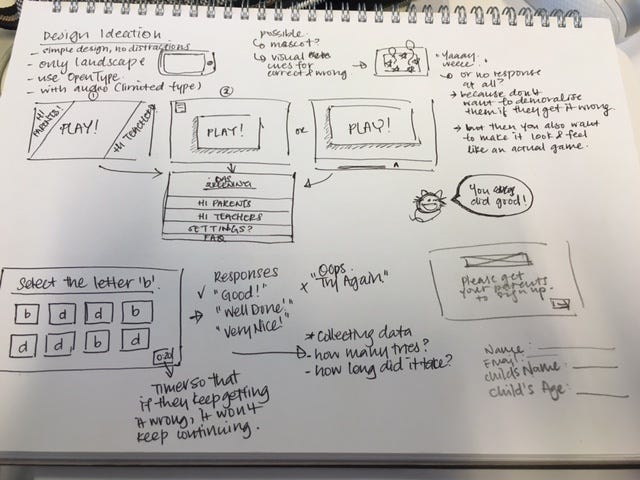 Design Ideation
- simple design, no distractions
- only landscape
- use OpenType
- with audio (limited type)
possible
↳ mascot?
↳ visual
cues for
correct & wrong
"Yaaay..
weeee."
↳ or no response
at all?
→ because don't
want to demoralise
them if they get it wrong
→ but then you also want
to make it look & feel
like an actual game.
①
HI PARENTS!
PLAY!
HI TEACHERS!
②
PLAY!
or
PLAY!
HI PARENTS
HI TEACHERS
SETTINGS?
FAQ
You
did good!
Select the letter 'b'.
b d d b
d d b d
0:20
Timer so that
if they keep getting
it wrong, it won't
keep continuing.
Responses
✓ "Good!"
"Well Done!"
"Very Nice!"
x "Oops.
Try Again."
* Collecting data
- how many tries?
- how long did it take?
please get
your parents
to sign up.
Name:
Email:
Child's Name:
Child's Age: